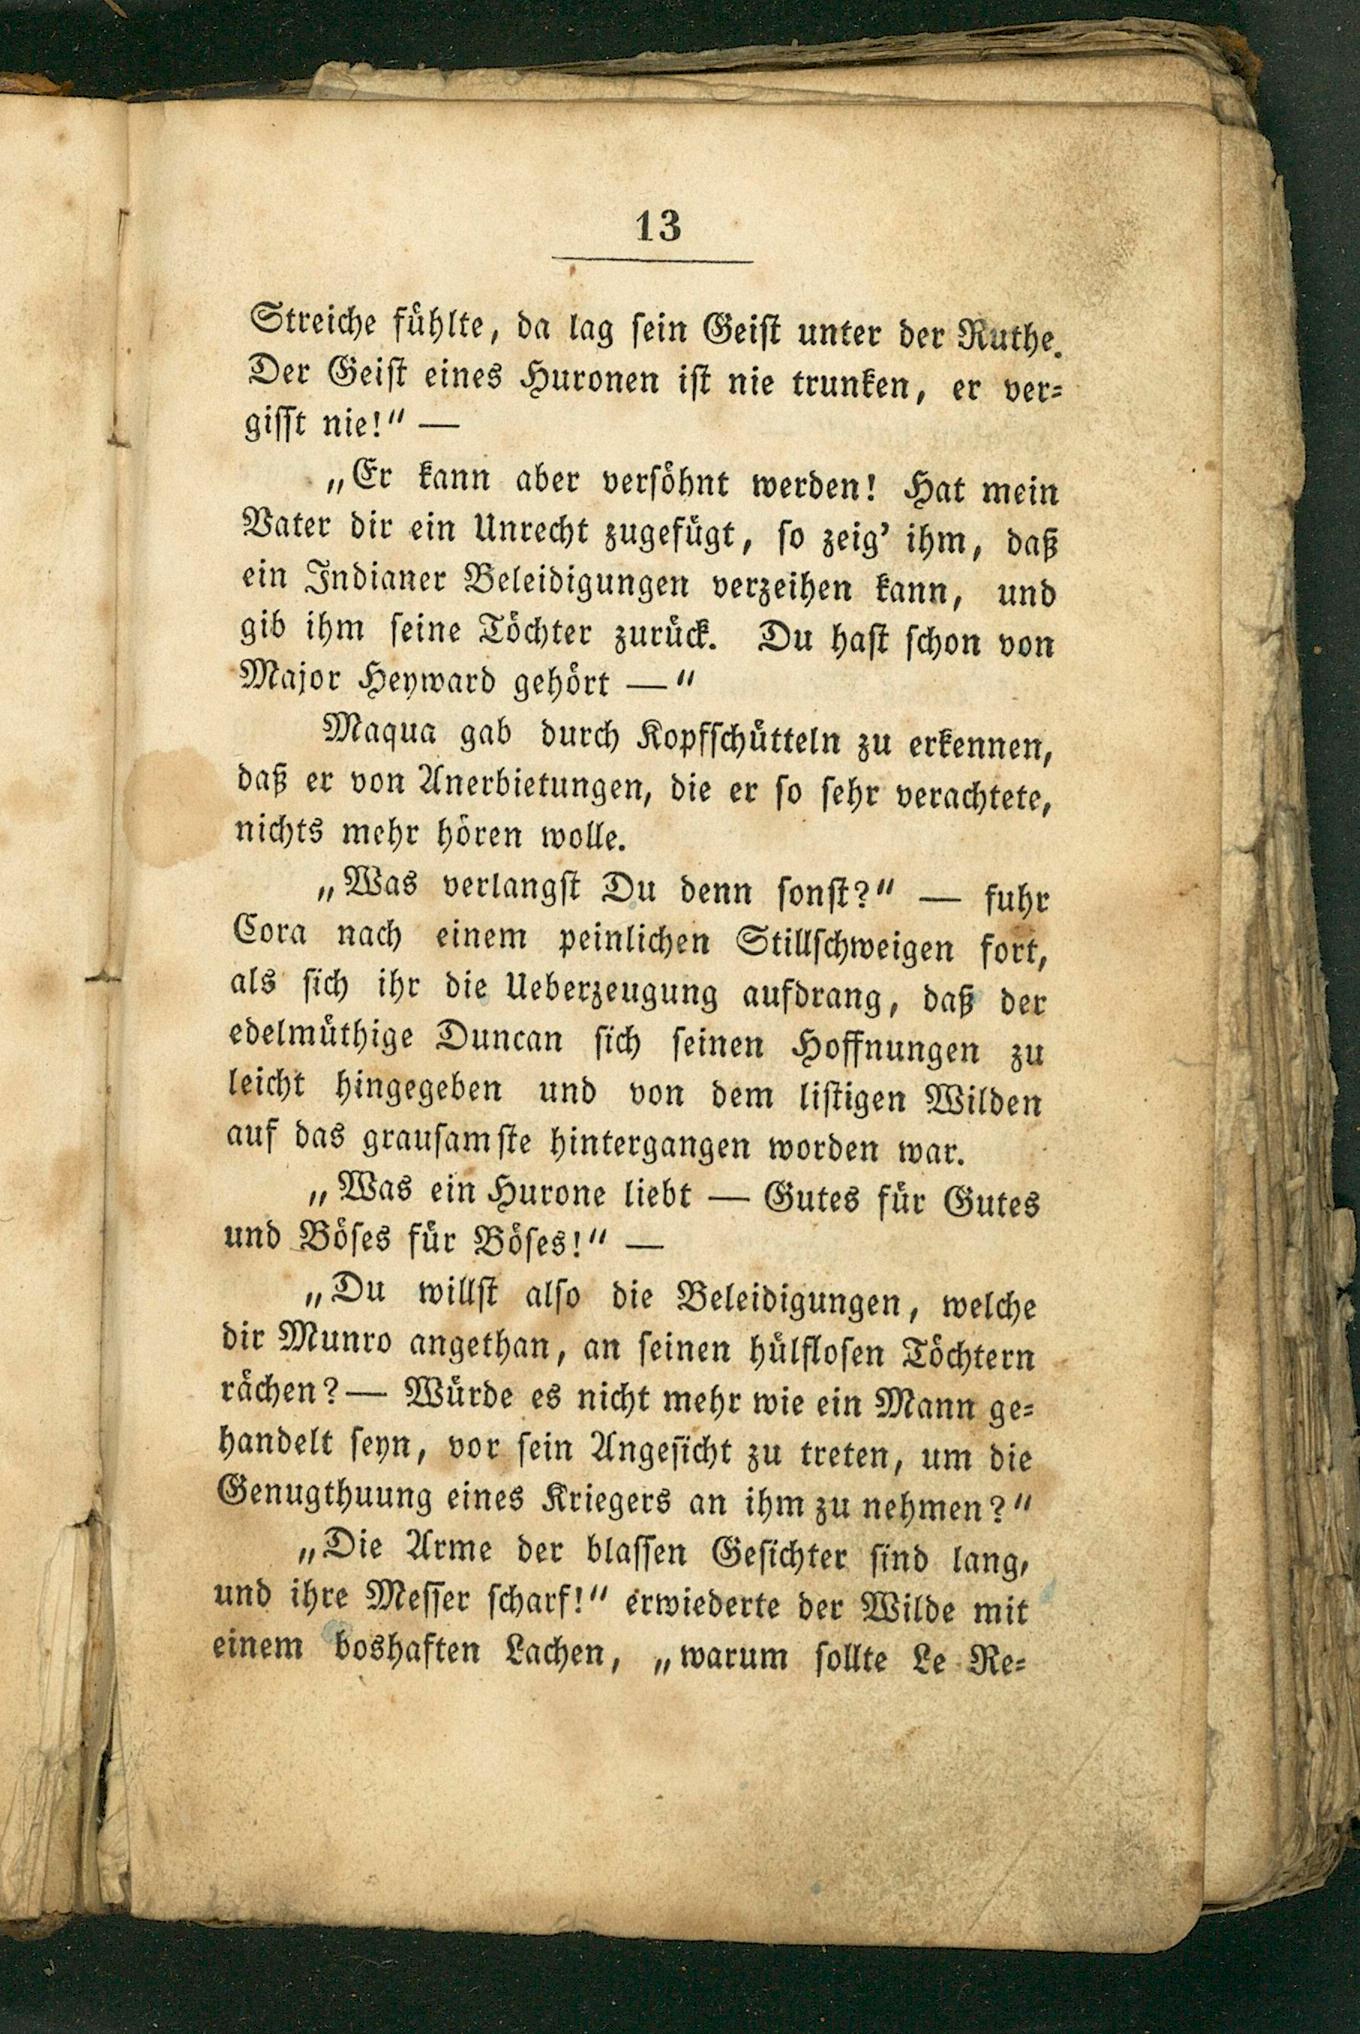 13
Streiche fühlte, da lag sein Geist unter der Ruthe.
Der Geist eines Huronen ist nie trunken, er ver=
gisst nie!“ —
„Er kann aber versöhnt werden! Hat mein
Vater dir ein Unrecht zugefügt, so zeig’ ihm, daß
ein Indianer Beleidigungen verzeihen kann, und
gib ihm seine Töchter zurück. Du hast schon von
Major Heyward gehört —“
Maqua gab durch Kopfschütteln zu erkennen,
daß er von Anerbietungen, die er so sehr verachtete,
nichts mehr hören wolle.
„Was verlangst Du denn sonst?“ — fuhr
Cora nach einem peinlichen Stillschweigen fort,
als sich ihr die Ueberzeugung aufdrang, daß der
edelmüthige Duncan sich seinen Hoffnungen zu
leicht hingegeben und von dem listigen Wilden
auf das grausamste hintergangen worden war.
„Was ein Hurone liebt — Gutes für Gutes
und Böses für Böses!“ —
„Du willst also die Beleidigungen, welche
dir Munro angethan, an seinen hülflosen Töchtern
rächen? — Würde es nicht mehr wie ein Mann ge=
handelt seyn, vor sein Angesicht zu treten, um die
Genugthuung eines Kriegers an ihm zu nehmen?“
„Die Arme der blassen Gesichter sind lang,
und ihre Messer scharf!“ erwiederte der Wilde mit
einem boshaften Lachen, „warum sollte Le Re=